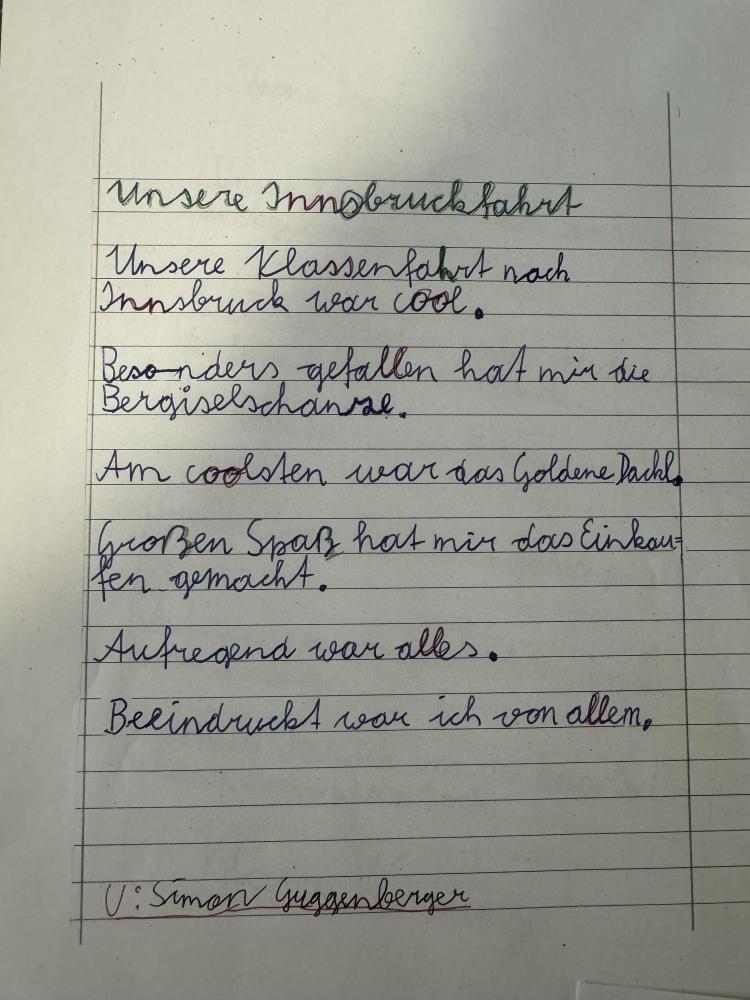 Unsere Innsbruckfahrt
Unsere Klassenfahrt nach
Innsbruck war cool.
Besonders gefallen hat mir die
Bergiselschanze.
Am coolsten war das Goldene Dachl.
Großen Spaß hat mir das Einkau=
fen gemacht.
Aufregend war alles.
Beeindruckt war ich von allem.
U: Simon Guggenberger